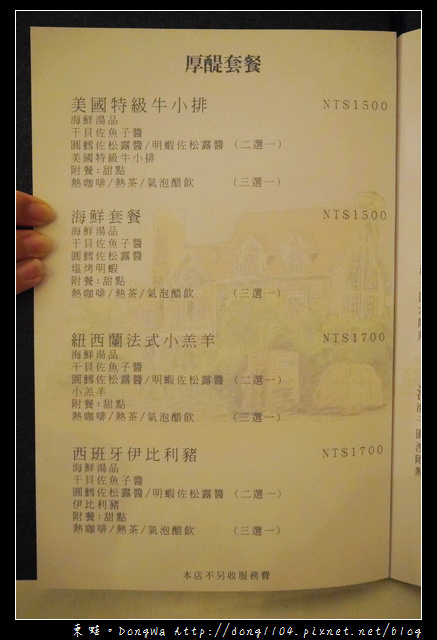 厚醍套餐
美國特級牛小排 NT$1500
海鮮湯品
干貝佐魚子醬
圓鱈佐松露醬/明蝦佐松露醬 (二選一)
美國特級牛小排
附餐:甜點
熱咖啡/熱茶/氣泡醋飲 (三選一)
海鮮套餐 NT$1500
海鮮湯品
干貝佐魚子醬
圓鱈佐松露醬
塩烤明蝦
附餐:甜點
熱咖啡/熱茶/氣泡醋飲 (三選一)
紐西蘭法式小羔羊 NT$1700
海鮮湯品
干貝佐魚子醬
圓鱈佐松露醬/明蝦佐松露醬 (二選一)
小羔羊
附餐:甜點
熱咖啡/熱茶/氣泡醋飲 (三選一)
西班牙伊比利豬 NT$1700
海鮮湯品
干貝佐魚子醬
圓鱈佐松露醬/明蝦佐松露醬 (二選一)
伊比利豬
附餐:甜點
熱咖啡/熱茶/氣泡醋飲 (三選一)
本店不另收服務費
東蛙。DongWa http://dong1104.pixnet.net/blog